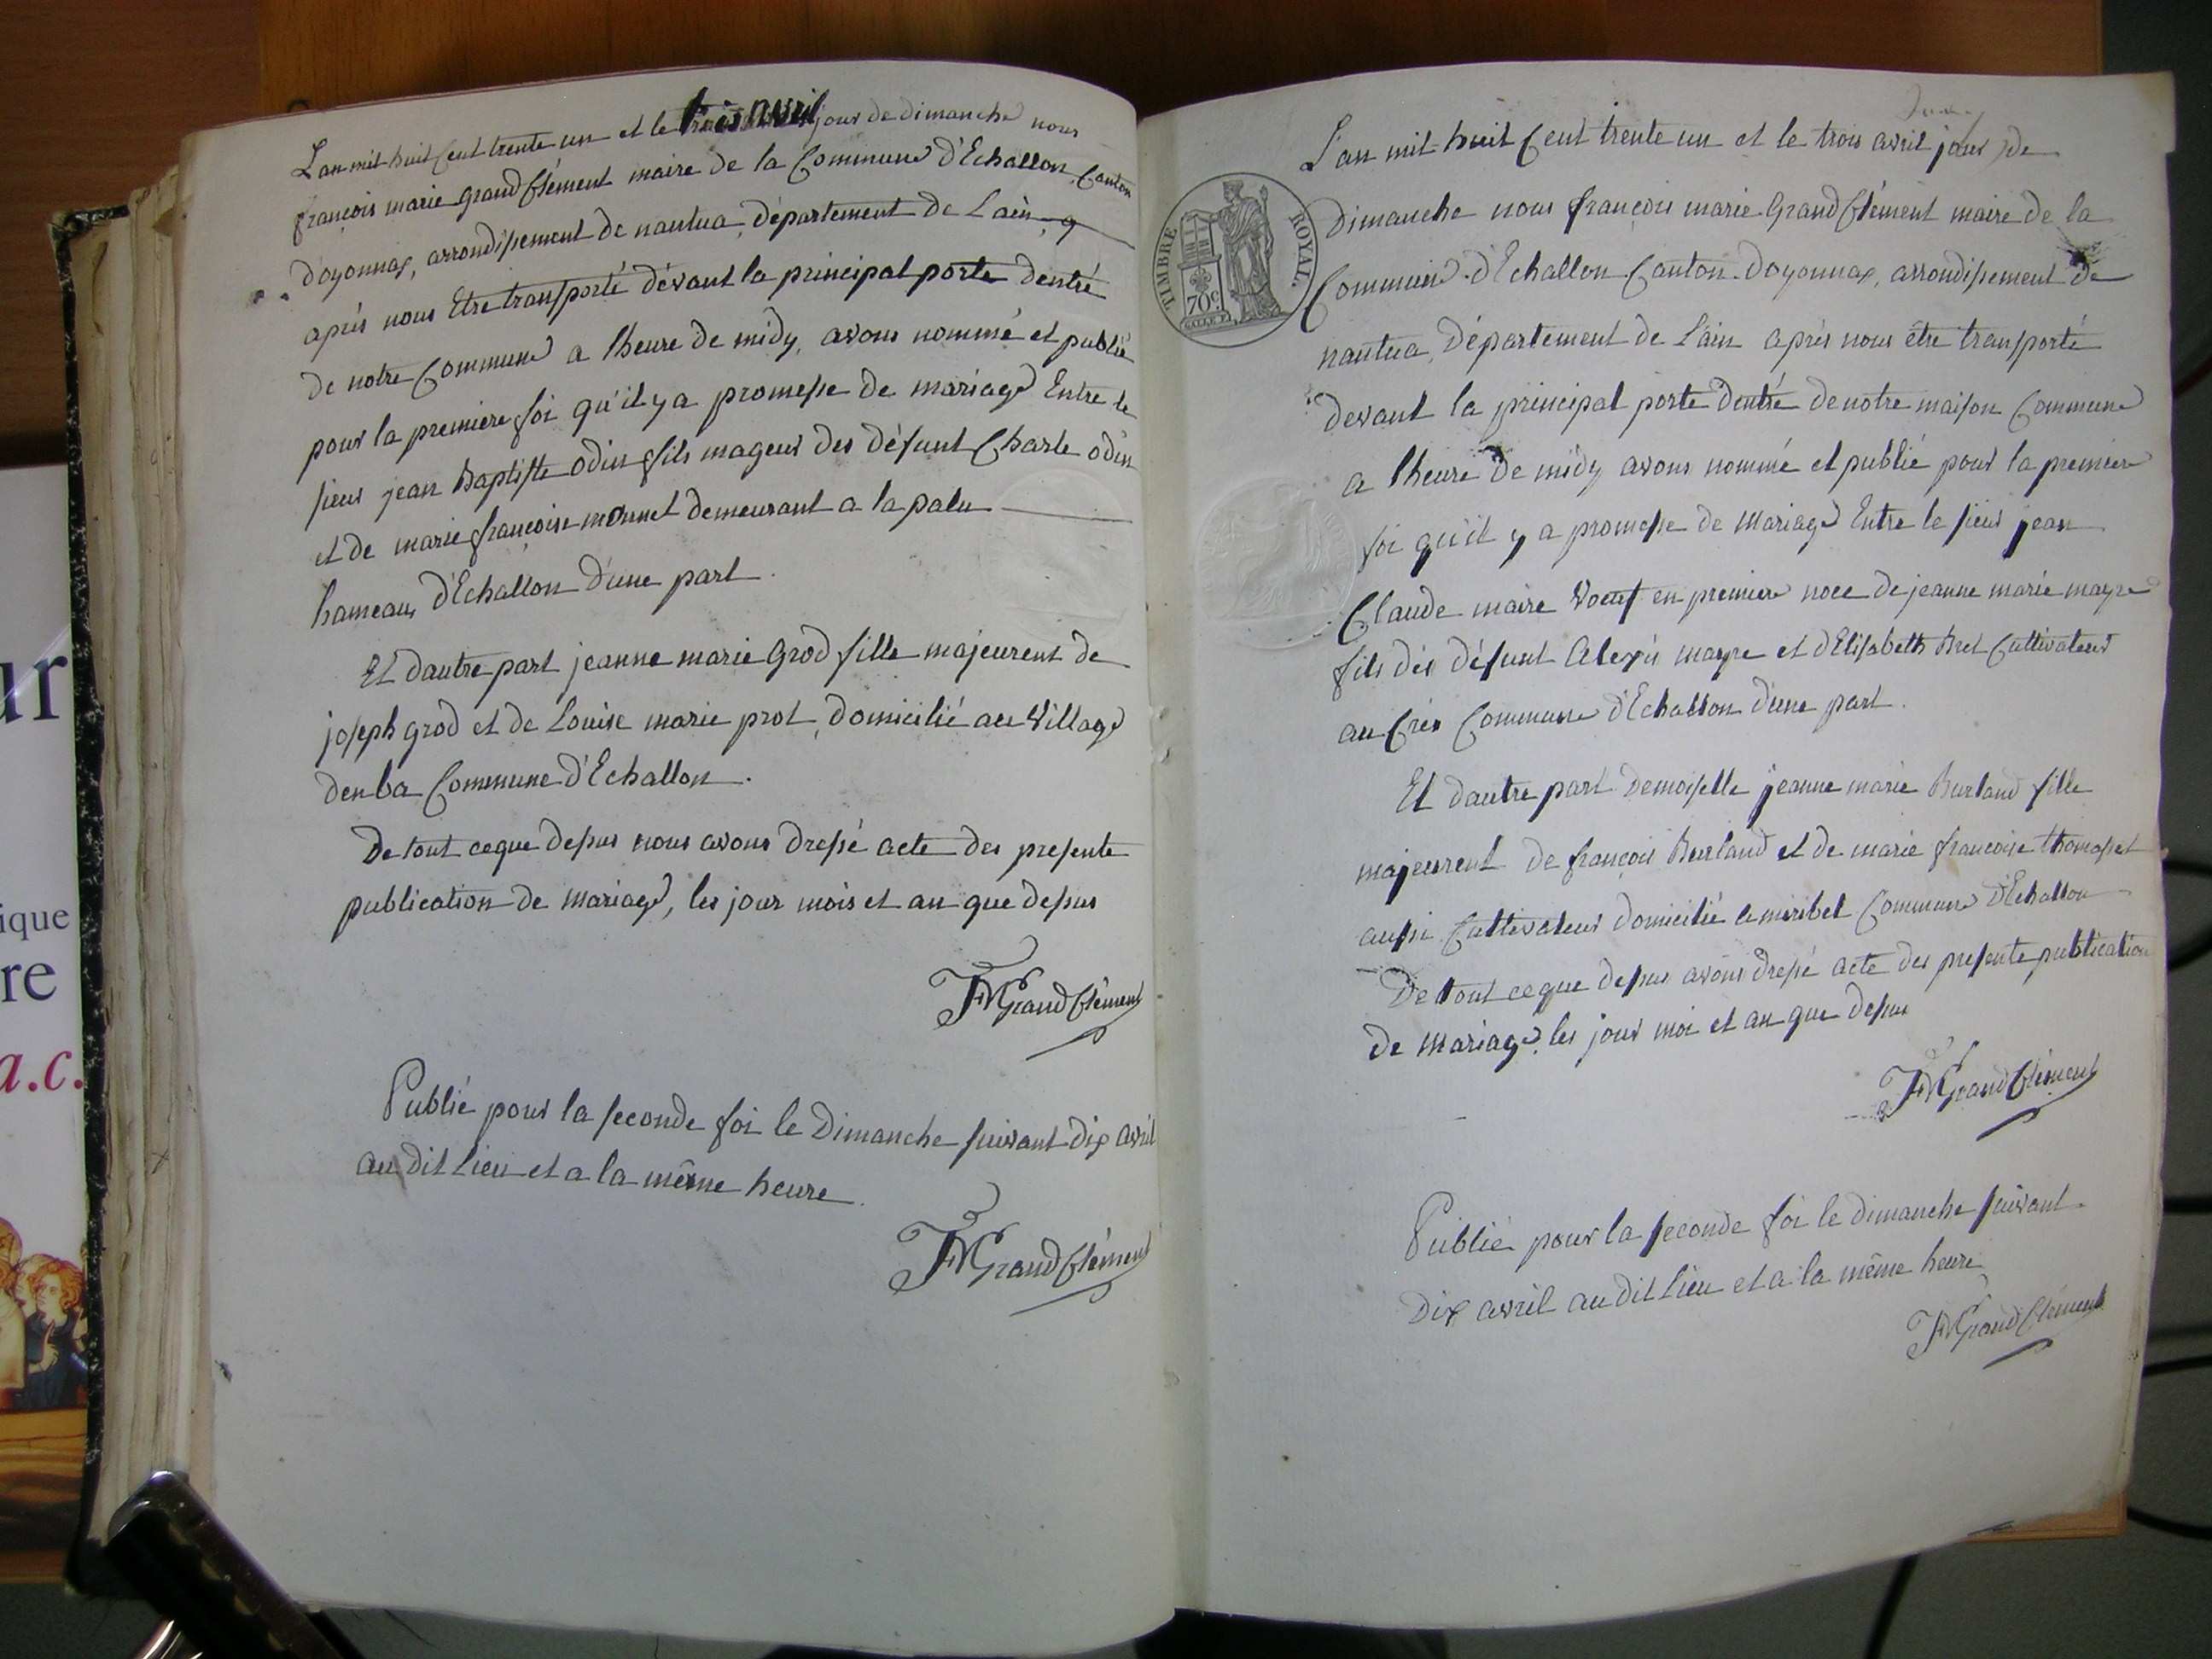 L'an mil huit Cent trente un et le trois avril jour de dimanche nous
françois marie grand Clément maire de la Commune d'Echallon, Canton
d'oyonnax, arrondissement de nantua, département de Lain
après nous Etre transporté dévant la principal porte dentré
de notre Commune a lheure de midy, avons nommé et publié
pour la premiere foi qu'il y a promesse de mariage Entre le
sieur jean Baptiste odin fils mageur des défunt Charle odin
et de marie françoise monnet demeurant a la palu
hameau d'Echallon d'une part.
Et dautre part jeanne marie Grod fille majeurent de
joseph grod et de Louise marie prot, domicilié au Village
denba Commune d'Echallon.
De tout ceque dessus nous avons dressé acte des presente
publication de mariage, les jour mois et an que dessus
FMGrandClément
Publié pour la seconde foi le Dimanche suivant dix avril
au dit Lieu et a la même heure.
FMGrandClément
L'an mil huit Cent trente un et le trois avril jour de
Dimanche nous françois marie Grand Clément maire de la
Commune d'Echallon Canton doyonnax, arrondissement de
nantua, Département de L'ain après nous être transporté
devant la principal porte dentré de notre maison Commune
a lheure de midy avons nommé et publié pour la premiere
foi qu'il y a promesse de Mariage Entre le sieur jean
Claude maire Voeuf en premiere noce de jeanne marie mayre
fils des défunt Alexis mayre et dElisabeth Bret Cultivateur
au Crés Commune d'Echallon d'une part.
Et dautre part Demoiselle jeanne marie Burland fille
majeurent de françois Burland et de marie francoise thomasset
aussi Cultivateur domicilié a miribel Commune d'Echallon
De tout ceque dessus avons dressé acte des presente publication
de Mariage, les jour moi et an que dessus
FMGrandClément
Publié pour la seconde foi le dimanche suivant
Dix avril au dit Lieu et a la même heure
FMGrandClément
TIMBRE ROYAL.
70c
ur
ique
re
a.c.